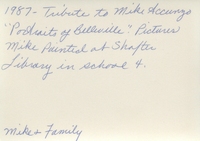 1987- Tribute to Mike Accurzo
"Portraits of Belleville" Pictures
Mike Painted at Shafter
Library in school 4.
Mike & Family